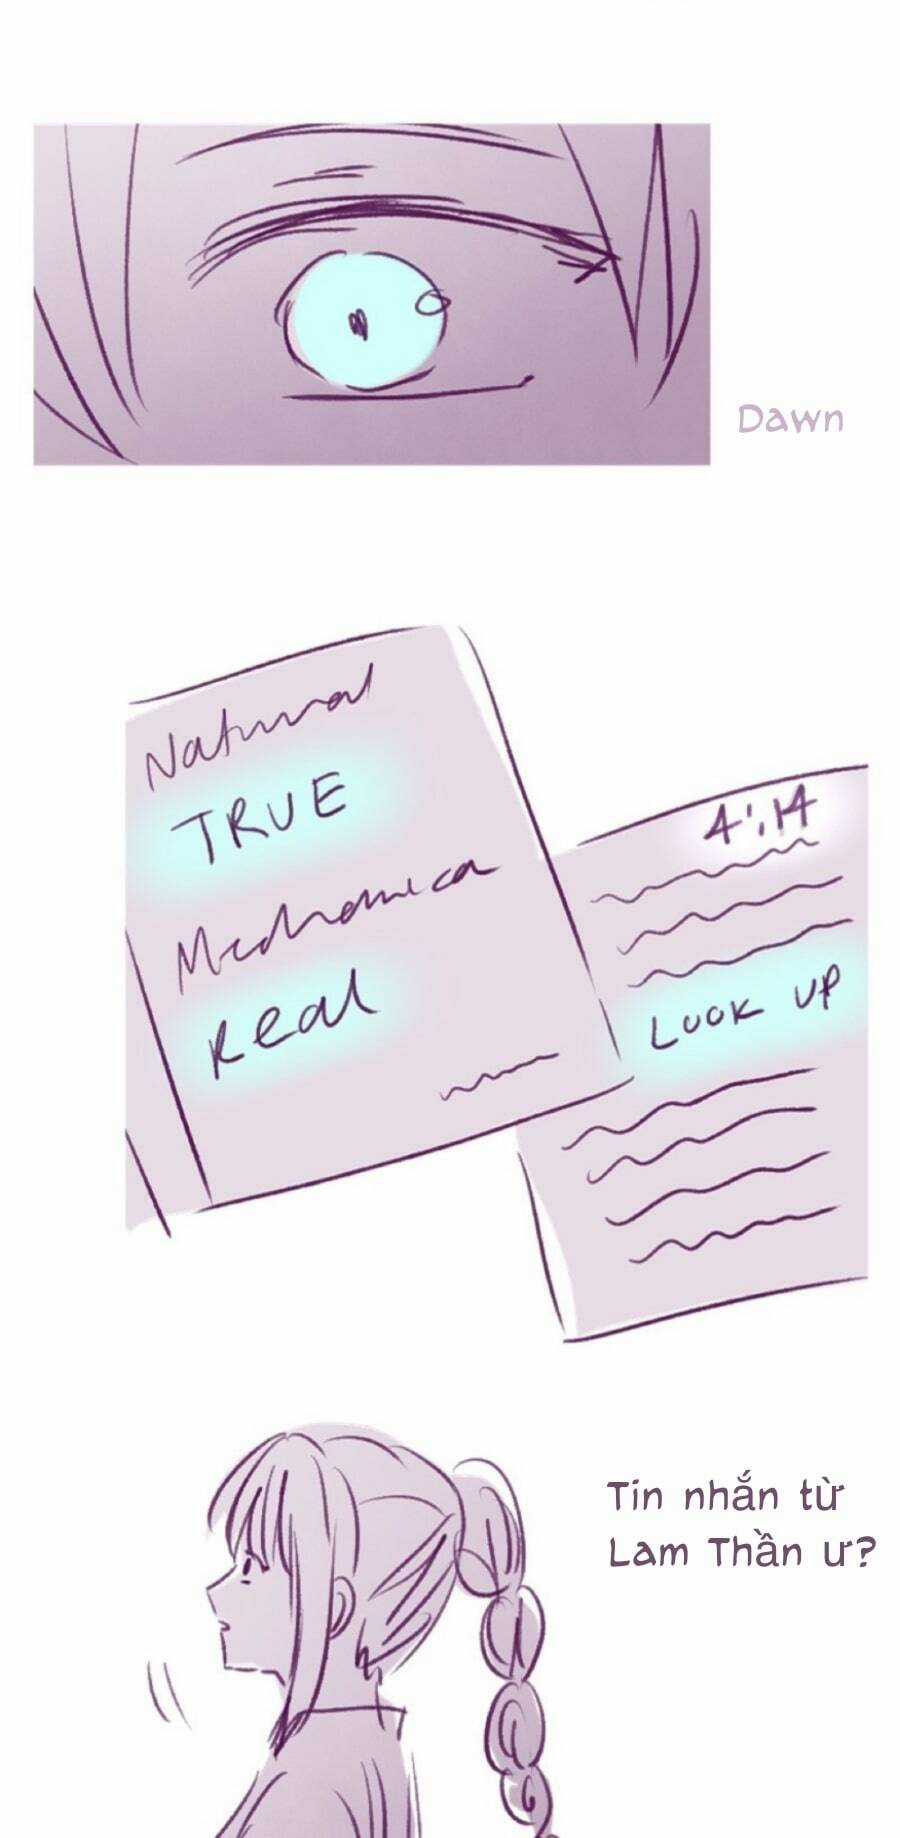 Dawn
Natural
TRUE
Mechanica
Real
4:14
LOOK UP
Tin nhắn từ
Lam Thần ư?